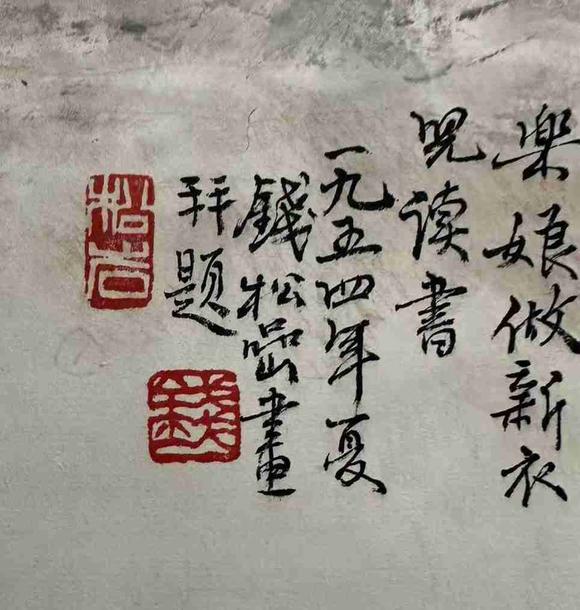 樂娘做新衣
児读書
一九五四年夏
錢松喦畫
拜題
松岩
錢